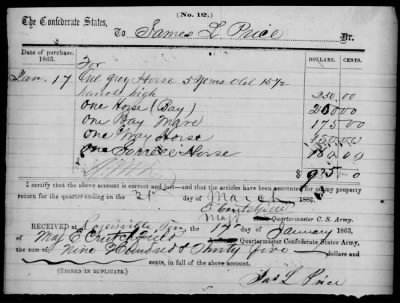 (No. 12.)
The Confederate States,
To James L Price Dr.
Date of purchase. 1863. DOLLARS. CENTS.
For
Jan. 17 One grey Horse 5 Years Old 15 1/2
hands high 250 00
One Horse (Bay) 250 00
One Bay Mare 175 00
One Horse
One Sorrel Horse
$ 935 00
I certify that the above account is correct and just—and that the articles have been accounted for on my property
return for the quarter ending on the day of March 1863.
E Crutchfield
Maj Quartermaster C. S. Army.
RECEIVED at Ten. the 17 day of January 1863,
of Maj E Crutchfield Quartermaster Confederate States Army,
the sum of Nine Hundred & Thirty Five dollars and
cents, in full of the above account.
(SIGNED IN DUPLICATE.) Jas L Price